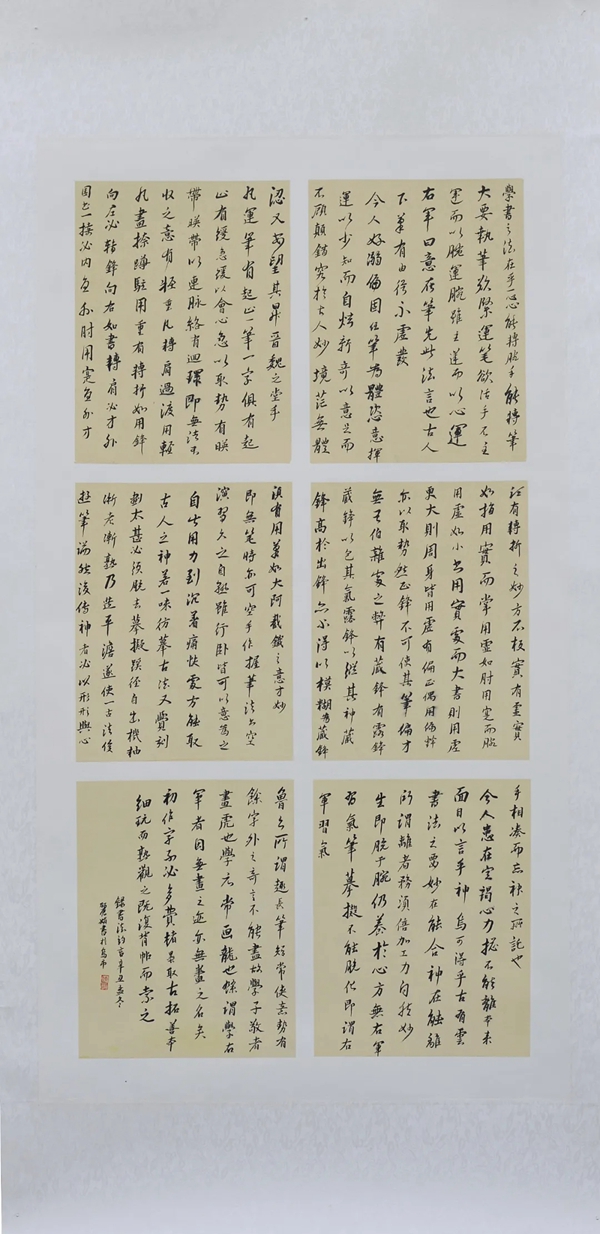 學書之法在乎一心心能轉腕手能轉筆
大要執筆欲緊運筆欲活手不主
運而以腕運腕雖主運而以心運
右軍曰意在筆先此法言也古人
下筆有由從不虛發
今人好溺偏固任筆為體恣意揮
運以少知而自炫新奇以意足而
不顧顛錯究於古人妙境茫無體
認又安望其昇晉魏之堂乎
凡運筆有起止一筆一字俱有起
止有緩急緩以會心急以取勢有映
帶映帶以連脉絡有迴環即無往不
收之意有輕重凡轉肩過渡用輕
凡畫捺蹲駐用重有轉折如用鋒
向左必轉鋒向右如書轉肩必方外
圓書一捺必内直外肘用寔直外方
須有轉折之妙方不板實有虛實
如指用實而掌用虛如肘用寔而腕
用虛如小書用實處而大書則用虛
更大則周身皆用虛有偏正偶用偏鋒
亦以取勢然正鋒不可使其筆偏方
無王伯雜處之弊有藏鋒有露鋒
藏鋒以包其氣露鋒以縱其神藏
鋒高於出鋒亦不得以模糊為藏鋒
須有用筆如太阿截鐵之意方妙
即無筆時亦可空手作握筆法書空
演習久之自熟雖行臥皆可以意為之
自此用力到沉著痛快處方能取
古人之神若一味仿摹古法又覺刻
劃太甚必須脫去摹擬蹊徑自出機軸
漸老漸熟乃造平澹遂使古法優
遊筆端然後傳神者必以形形與心
手相湊而忘神之所託也
今人患在空竭心力總不能離本來
面目以言乎神烏可得乎古有雲
書法之要妙在能合神在能離
所謂離者務須倍加工力自然妙
生即脫乎腕仍養於心方無右軍
習氣筆摹擬不能脫化即謂右
軍習氣
魯公所謂趣長筆短常使意勢有
餘字外之奇言不能盡故學子敬者
畫虎也學元常畫龍也餘謂學右
軍者因無畫之迹亦無畫之名矣
初作字不必多費楮墨取古拓善本
細玩而熟觀之既復背帖而索之
錄書法約言辛丑孟冬
書於烏市